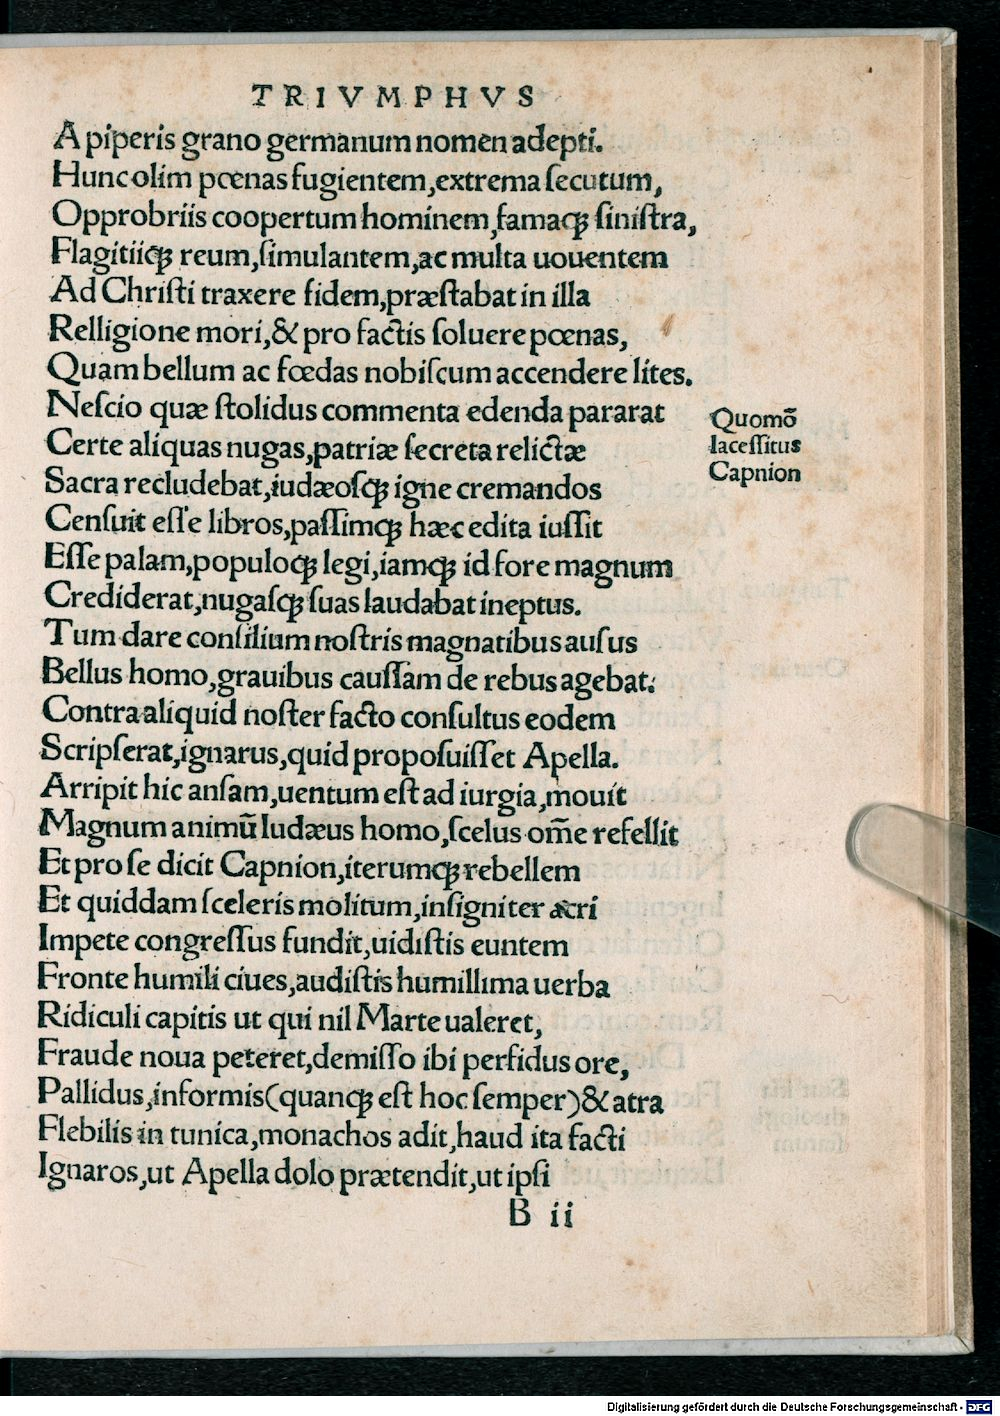 TRIVMPHVS
A piperis grano germanum nomen adepti.
Hunc olim pœnas fugientem, extrema ſecutum,
Opprobriis coopertum hominem, famaqꝫ ſiniſtra,
Flagitiiqꝫ reum, ſimulantem, ac multa uouentem
Ad Chriſti traxere fidem, præſtabat in illa
Relligione mori, & pro factis ſoluere pœnas,
Quam bellum ac fœdas nobiſcum accendere lites.
Neſcio quæ ſtolidus commenta edenda pararat
Certe aliquas nugas, patriæ ſecreta relictæ
Sacra recludebat, iudæoſqꝫ igne cremandos
Cenſuit eſſe libros, paſſimqꝫ hæc edita iuſſit
Eſſe palam, populoqꝫ legi, iamqꝫ id fore magnum
Crediderat, nugaſqꝫ ſuas laudabat ineptus.
Tum dare conſilium noſtris magnatibus auſus
Bellus homo, grauibus cauſſam de rebus agebat.
Contra aliquid noſter facto conſultus eodem
Scripſerat, ignarus, quid propoſuiſſet Apella.
Arripit hic anſam, uentum eſt ad iurgia, mouit
Magnum animū Iudæus homo, ſcelus om̄e refellit
Et pro ſe dicit Capnion, iterumqꝫ rebellem
Et quiddam ſceleris molitum, inſigniter acri
Impete congreſſus fundit, uidiſtis euntem
Fronte humili ciues, audiſtis humillima uerba
Ridiculi capitis ut qui nil Marte ualeret,
Fraude noua peteret, demiſſo ibi perfidus ore,
Pallidus, informis (quanqꝫ eſt hoc ſemper) & atra
Flebilis in tunica, monachos adit, haud ita facti
Ignaros, ut Apella dolo prætendit, ut ipſi
B ii
Quomō
laceſſitus
Capnion
Digitalisierung gefördert durch die Deutsche Forschungsgemeinschaft - DFG